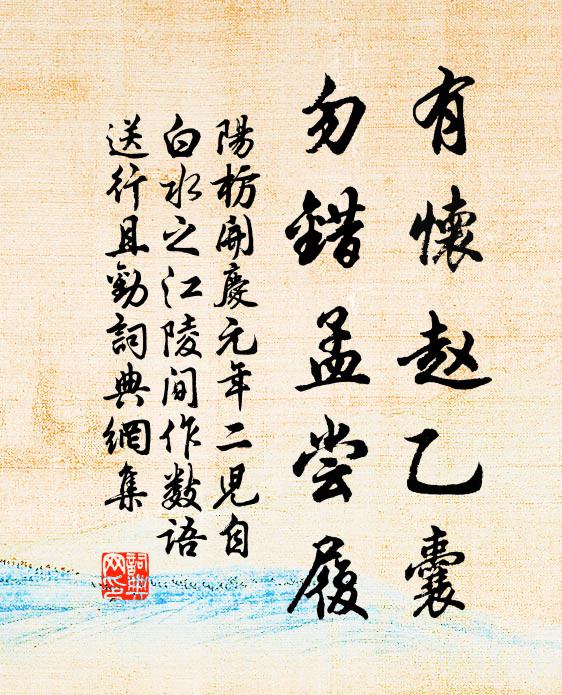 有懷赵乙囊
勿錯孟尝履
陽枋開慶元年二児自
白水之江陵間作数语
送行且勸詞典網集